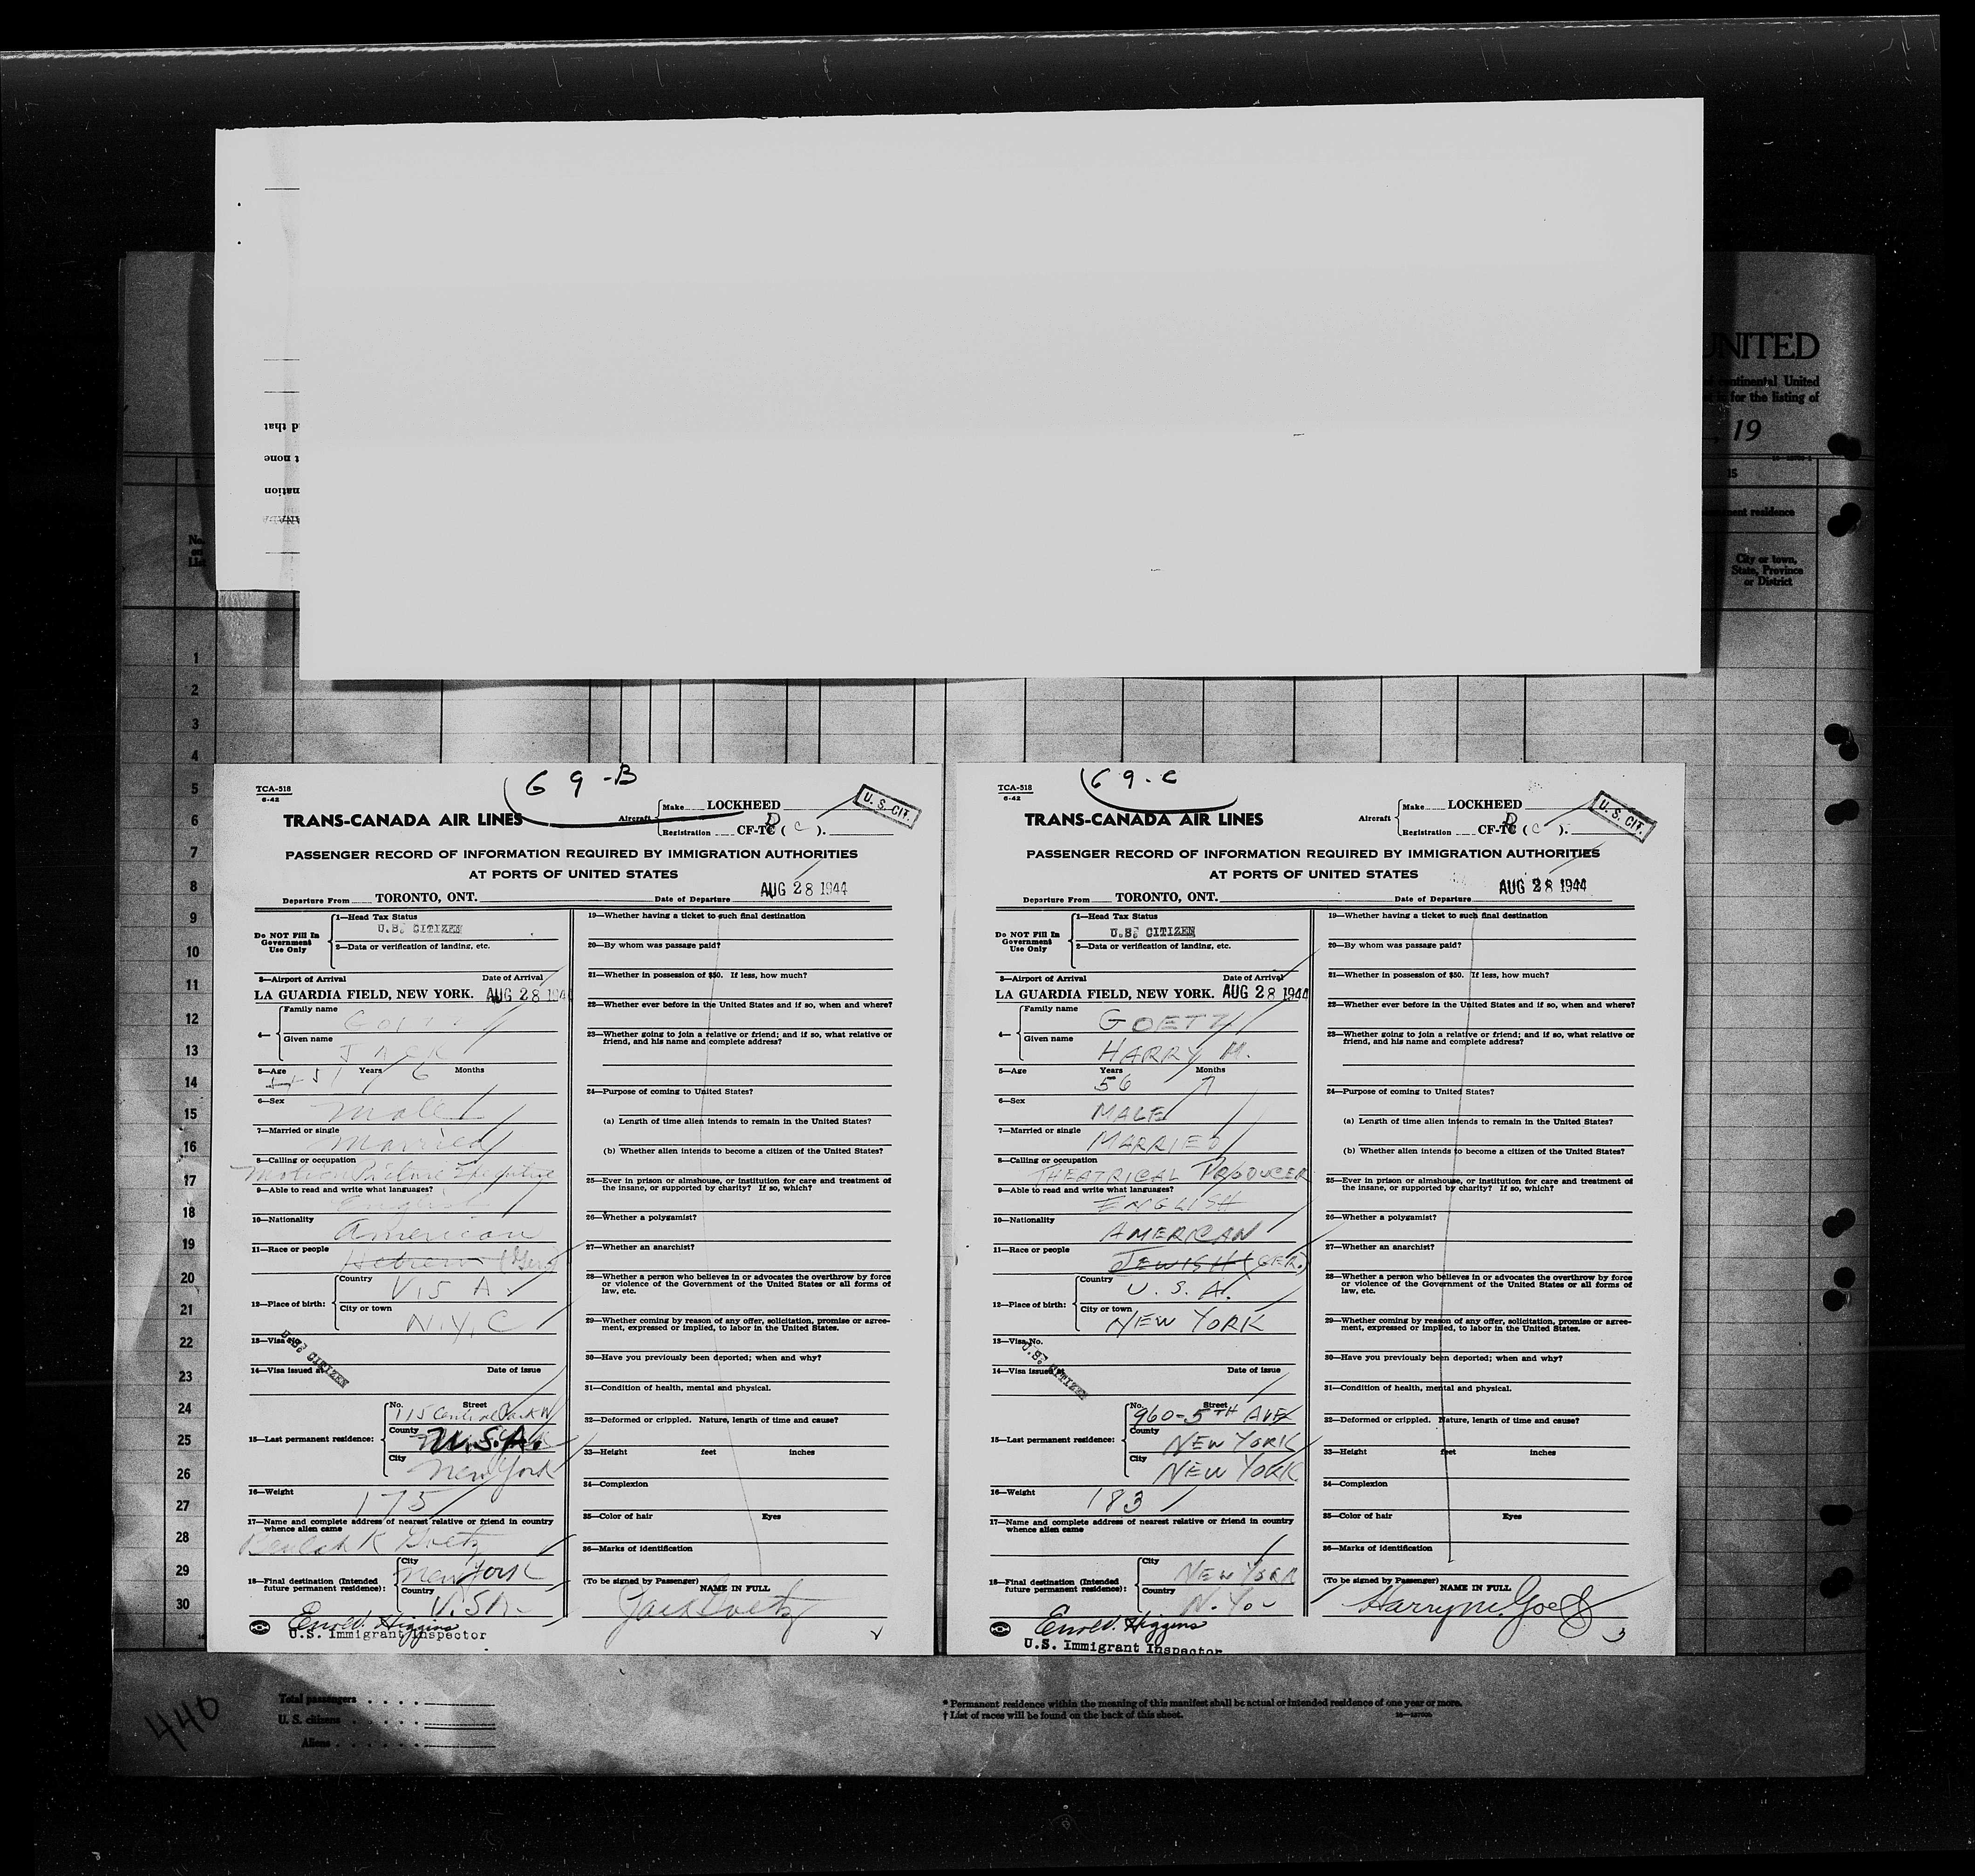 UNITED
continental United
for the listing of
, 19
15
residence
City or town,
State, Province
or District
No.
on
List
1
2
3
4
5
6
7
8
9
10
11
12
13
14
15
16
17
18
19
20
21
22
23
24
25
26
27
28
29
30
69-B
TCA-518
6-42
TRANS-CANADA AIR LINES
Aircraft
Make LOCKHEED
Registration CF-TC ( C ).
D
U. S. CIT.
PASSENGER RECORD OF INFORMATION REQUIRED BY IMMIGRATION AUTHORITIES
AT PORTS OF UNITED STATES
Departure From TORONTO, ONT. Date of Departure AUG 28 1944
Do NOT Fill In
Government
Use Only
1—Head Tax Status
U.S. CITIZEN
2—Data or verification of landing, etc.
3—Airport of Arrival Date of Arrival
LA GUARDIA FIELD, NEW YORK. AUG 28 194
4—
Family name
GOETZ
Given name
JACK
5—Age 51 Years 6 Months
6—Sex
Male
7—Married or single
Married
8—Calling or occupation
Motion Picture Executive
9—Able to read and write what languages?
English
10—Nationality
American
11—Race or people
Hebrew (Ger)
12—Place of birth:
Country
U.S.A.
City or town
N.Y.C
13—Visa No.
U.S. CITIZEN
14—Visa issued at Date of issue
15—Last permanent residence:
No. Street
115 Central Park W
County
U.S.A.
City
New York
16—Weight
175
17—Name and complete address of nearest relative or friend in country
whence alien came
Beulah K Goetz
18—Final destination (Intended
future permanent residence):
City
New York
Country
U.S.A.
U.S. Immigrant Inspector
19—Whether having a ticket to such final destination
20—By whom was passage paid?
21—Whether in possession of $50. If less, how much?
22—Whether ever before in the United States and if so, when and where?
23—Whether going to join a relative or friend; and if so, what relative or
friend, and his name and complete address?
24—Purpose of coming to United States?
(a) Length of time alien intends to remain in the United States?
(b) Whether alien intends to become a citizen of the United States?
25—Ever in prison or almshouse, or institution for care and treatment of
the insane, or supported by charity? If so, which?
26—Whether a polygamist?
27—Whether an anarchist?
28—Whether a person who believes in or advocates the overthrow by force
or violence of the Government of the United States or all forms of
law, etc.
29—Whether coming by reason of any offer, solicitation, promise or agree-
ment, expressed or implied, to labor in the United States.
30—Have you previously been deported; when and why?
31—Condition of health, mental and physical.
32—Deformed or crippled. Nature, length of time and cause?
33—Height feet inches
34—Complexion
35—Color of hair Eyes
36—Marks of identification
(To be signed by Passenger)
NAME IN FULL
Jack Goetz
69-C
TCA-518
6-42
TRANS-CANADA AIR LINES
Aircraft
Make LOCKHEED
Registration CF-TC ( C ).
D
U. S. CIT.
PASSENGER RECORD OF INFORMATION REQUIRED BY IMMIGRATION AUTHORITIES
AT PORTS OF UNITED STATES
Departure From TORONTO, ONT. Date of Departure AUG 28 1944
Do NOT Fill In
Government
Use Only
1—Head Tax Status
U.S. CITIZEN
2—Data or verification of landing, etc.
3—Airport of Arrival Date of Arrival
LA GUARDIA FIELD, NEW YORK. AUG 28 1944
4—
Family name
GOETZ
Given name
HARRY M.
5—Age Years Months
56 7
6—Sex
MALE
7—Married or single
MARRIED
8—Calling or occupation
THEATRICAL PRODUCER
9—Able to read and write what languages?
ENGLISH
10—Nationality
AMERICAN
11—Race or people
JEWISH (GER.)
12—Place of birth:
Country
U. S. A.
City or town
NEW YORK
13—Visa No.
U.S. CITIZEN
14—Visa issued Date of issue
15—Last permanent residence:
No. Street
960-5TH AVE
County
NEW YORK
City
NEW YORK
16—Weight
183
17—Name and complete address of nearest relative or friend in country
whence alien came
18—Final destination (Intended
future permanent residence):
City
NEW YORK
Country
N. Yo-
U.S. Immigrant Inspector
19—Whether having a ticket to such final destination
20—By whom was passage paid?
21—Whether in possession of $50. If less, how much?
22—Whether ever before in the United States and if so, when and where?
23—Whether going to join a relative or friend; and if so, what relative or
friend, and his name and complete address?
24—Purpose of coming to United States?
(a) Length of time alien intends to remain in the United States?
(b) Whether alien intends to become a citizen of the United States?
25—Ever in prison or almshouse, or institution for care and treatment of
the insane, or supported by charity? If so, which?
26—Whether a polygamist?
27—Whether an anarchist?
28—Whether a person who believes in or advocates the overthrow by force
or violence of the Government of the United States or all forms of
law, etc.
29—Whether coming by reason of any offer, solicitation, promise or agree-
ment, expressed or implied, to labor in the United States.
30—Have you previously been deported; when and why?
31—Condition of health, mental and physical.
32—Deformed or crippled. Nature, length of time and cause?
33—Height feet inches
34—Complexion
35—Color of hair Eyes
36—Marks of identification
(To be signed by Passenger)
NAME IN FULL
Harry M. Goetz
3
440
Total passengers
U. S. citizens
Aliens
* Permanent residence within the meaning of this manifest shall be actual or intended residence of one year or more.
† List of races will be found on the back of this sheet.